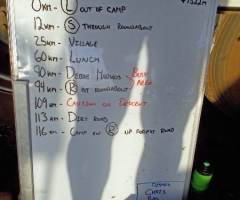 0km - L OUT OF CAMP
12km - S THROUGH ROUNDABOUT
25km - VILLAGE
60km - LUNCH
90km - DEBRE MARKOS BUSY AREA
99km - R AT ROUNDABOUT
109km - CAUTION ON DESCENT
113km - DIRT ROAD
116km - CAMP ON R UP FOREST ROAD
CHATS